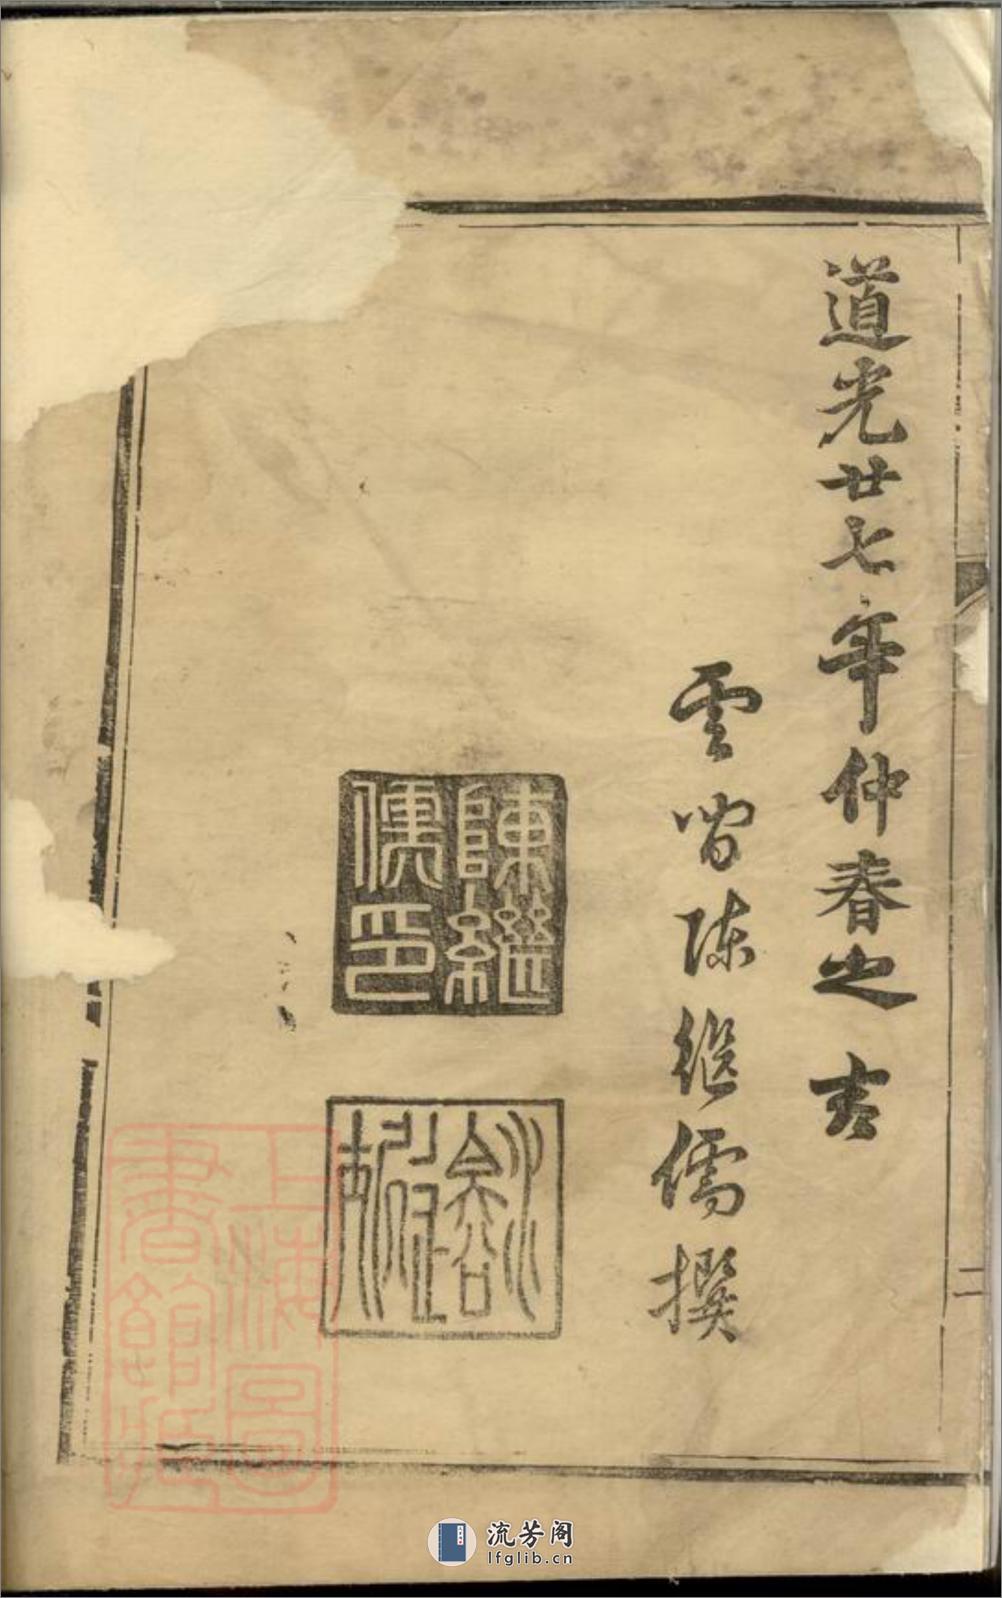 道光廿七年仲春之吉
雲間陳继儒撰
陳繼儒印
二
上海圖書館藏
流芳阁
lfglib.cn